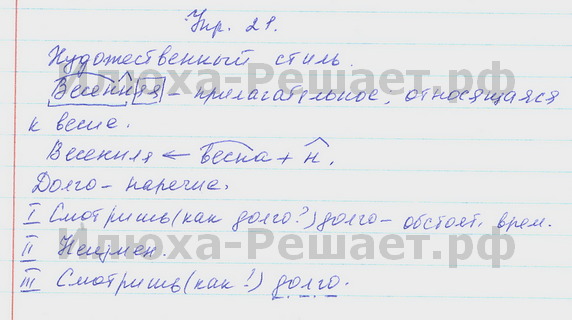 Упр. 21.
Художественный стиль.
Весенняя – прилагательное, относящаяся
к весне.
Весенняя ← весна + н.
Долго – наречие.
I Смотришь (как долго?) долго – обстоят. врем.
II Неизмен.
III Смотришь (как?) долго.
Илюха-Решает.рф
Илюха-Решает.рф